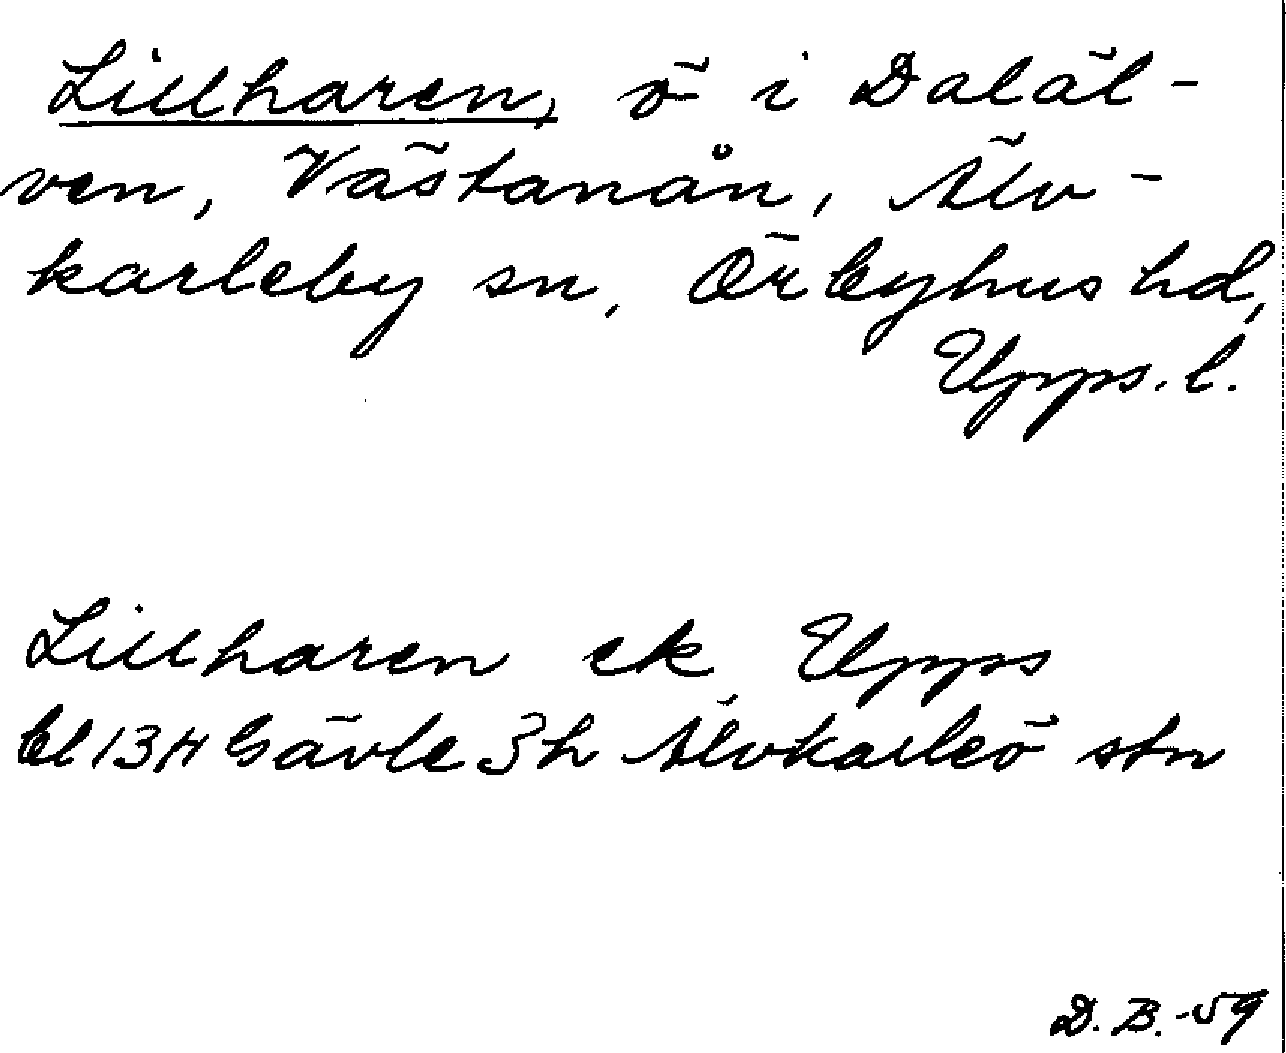 Lillharen, ö i Daläl-
ven, Västanån, Älv-
karleby sn, Örbyhus hd,
Upps. l.
Lillharen ek Upps
bl 13H Gävle 3h Älvkarleö stn
D. B. -59